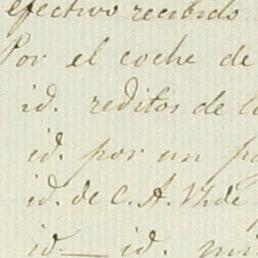 efectivo recibido
Por el coche de
id. reditos de
id. por un
id. de C. A.
id. — id.